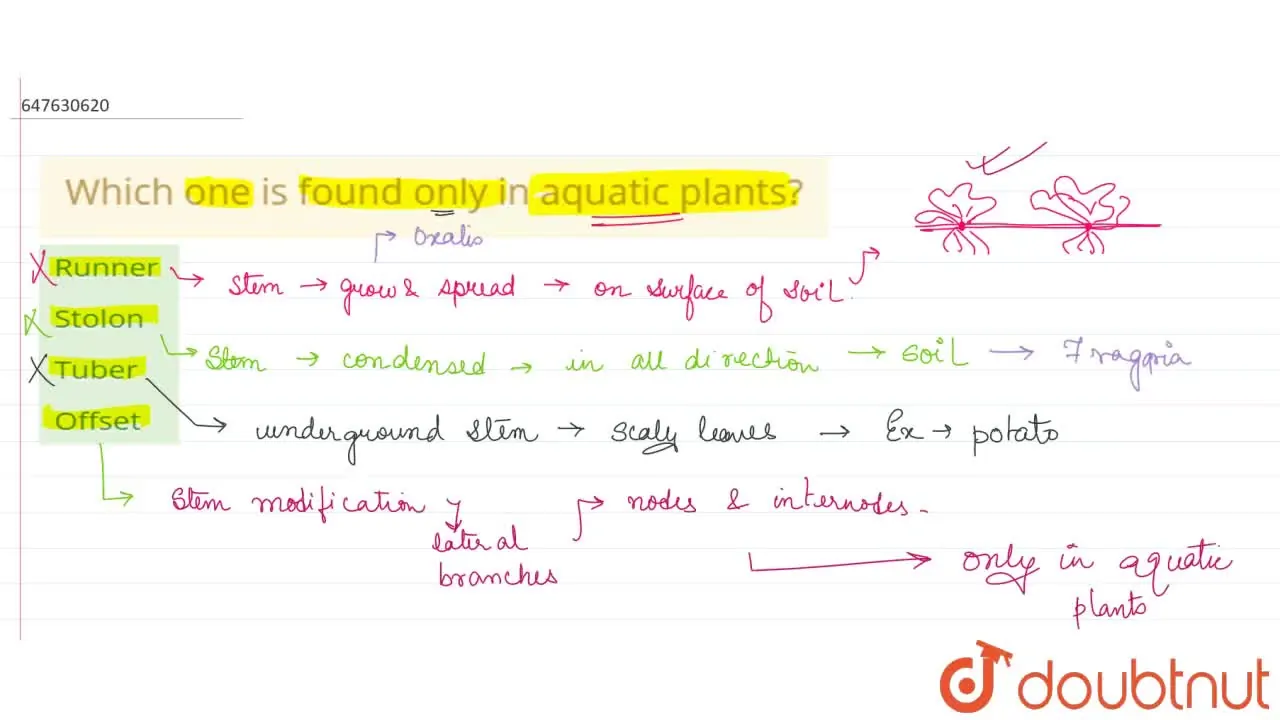 647630620
Which one is found only in aquatic plants?
Oxalis
Runner
Stem → grow & spread → on surface of soil.
Stolon
Stem → condensed → in all direction → soil →
Tuber
underground stem → scaly leaves → Ex → potato
Offset
Stem modification
nodes & internodes -
lateral
branches
only in aquatic
plants
doubtnut